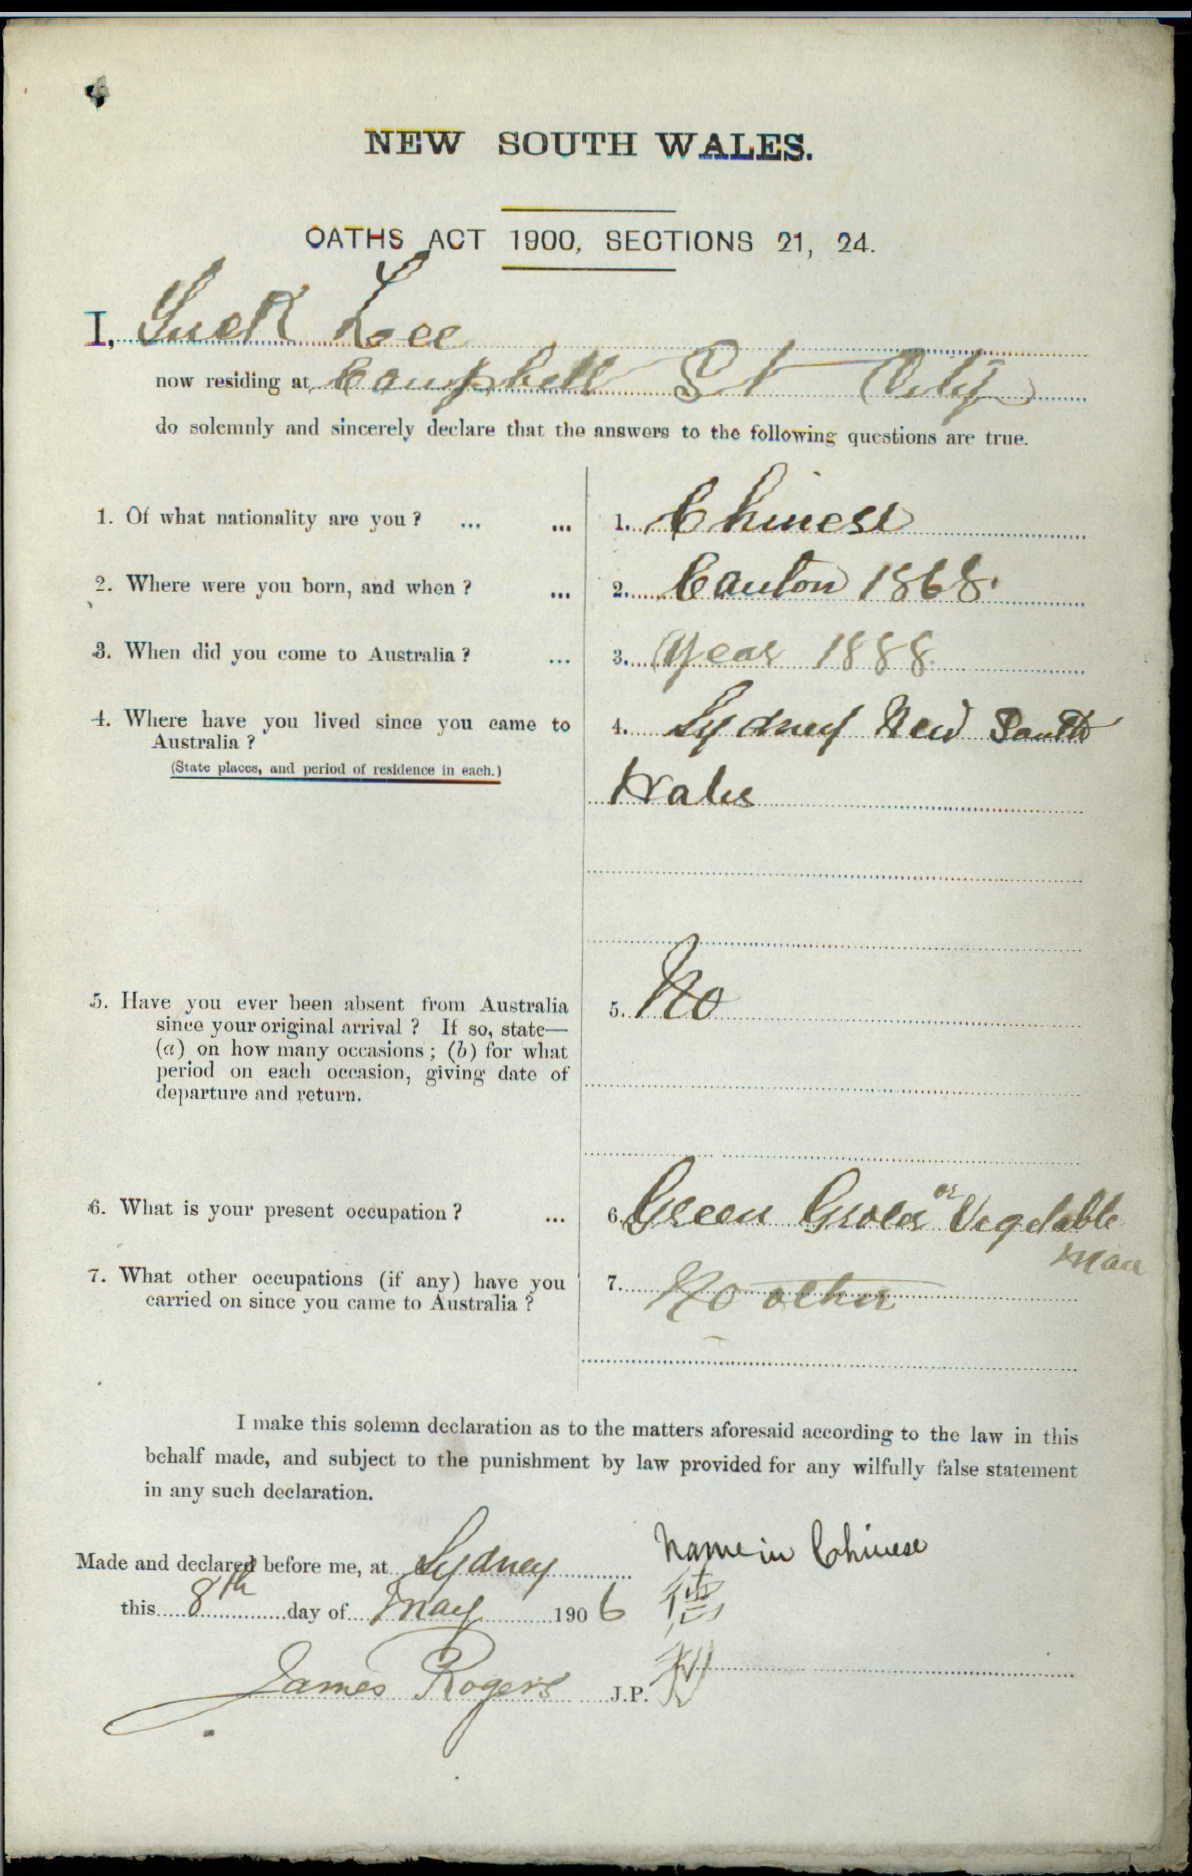 NEW SOUTH WALES.
OATHS ACT 1900, SECTIONS 21, 24.
I, Lee
now residing at Campbell St City
do solemnly and sincerely declare that the answers to the following questions are true.
1. Of what nationality are you? ... ... 1. Chinese
2. Where were you born, and when? ... 2. Canton 1868.
3. When did you come to Australia? ... 3. Year 1888.
4. Where have you lived since you came to 4. Sydney New South
Australia?
(State places, and period of residence in each.)
Wales
5. Have you ever been absent from Australia 5. No
since your original arrival? If so, state—
(a) on how many occasions; (b) for what
period on each occasion, giving date of
departure and return.
6. What is your present occupation? ... 6. Green Grocer or Vegetable
Man
7. What other occupations (if any) have you 7. No other
carried on since you came to Australia?
I make this solemn declaration as to the matters aforesaid according to the law in this
behalf made, and subject to the punishment by law provided for any wilfully false statement
in any such declaration.
Made and declared before me, at Sydney Name in Chinese
this 8th day of May 1906
James Rogers J.P.
利